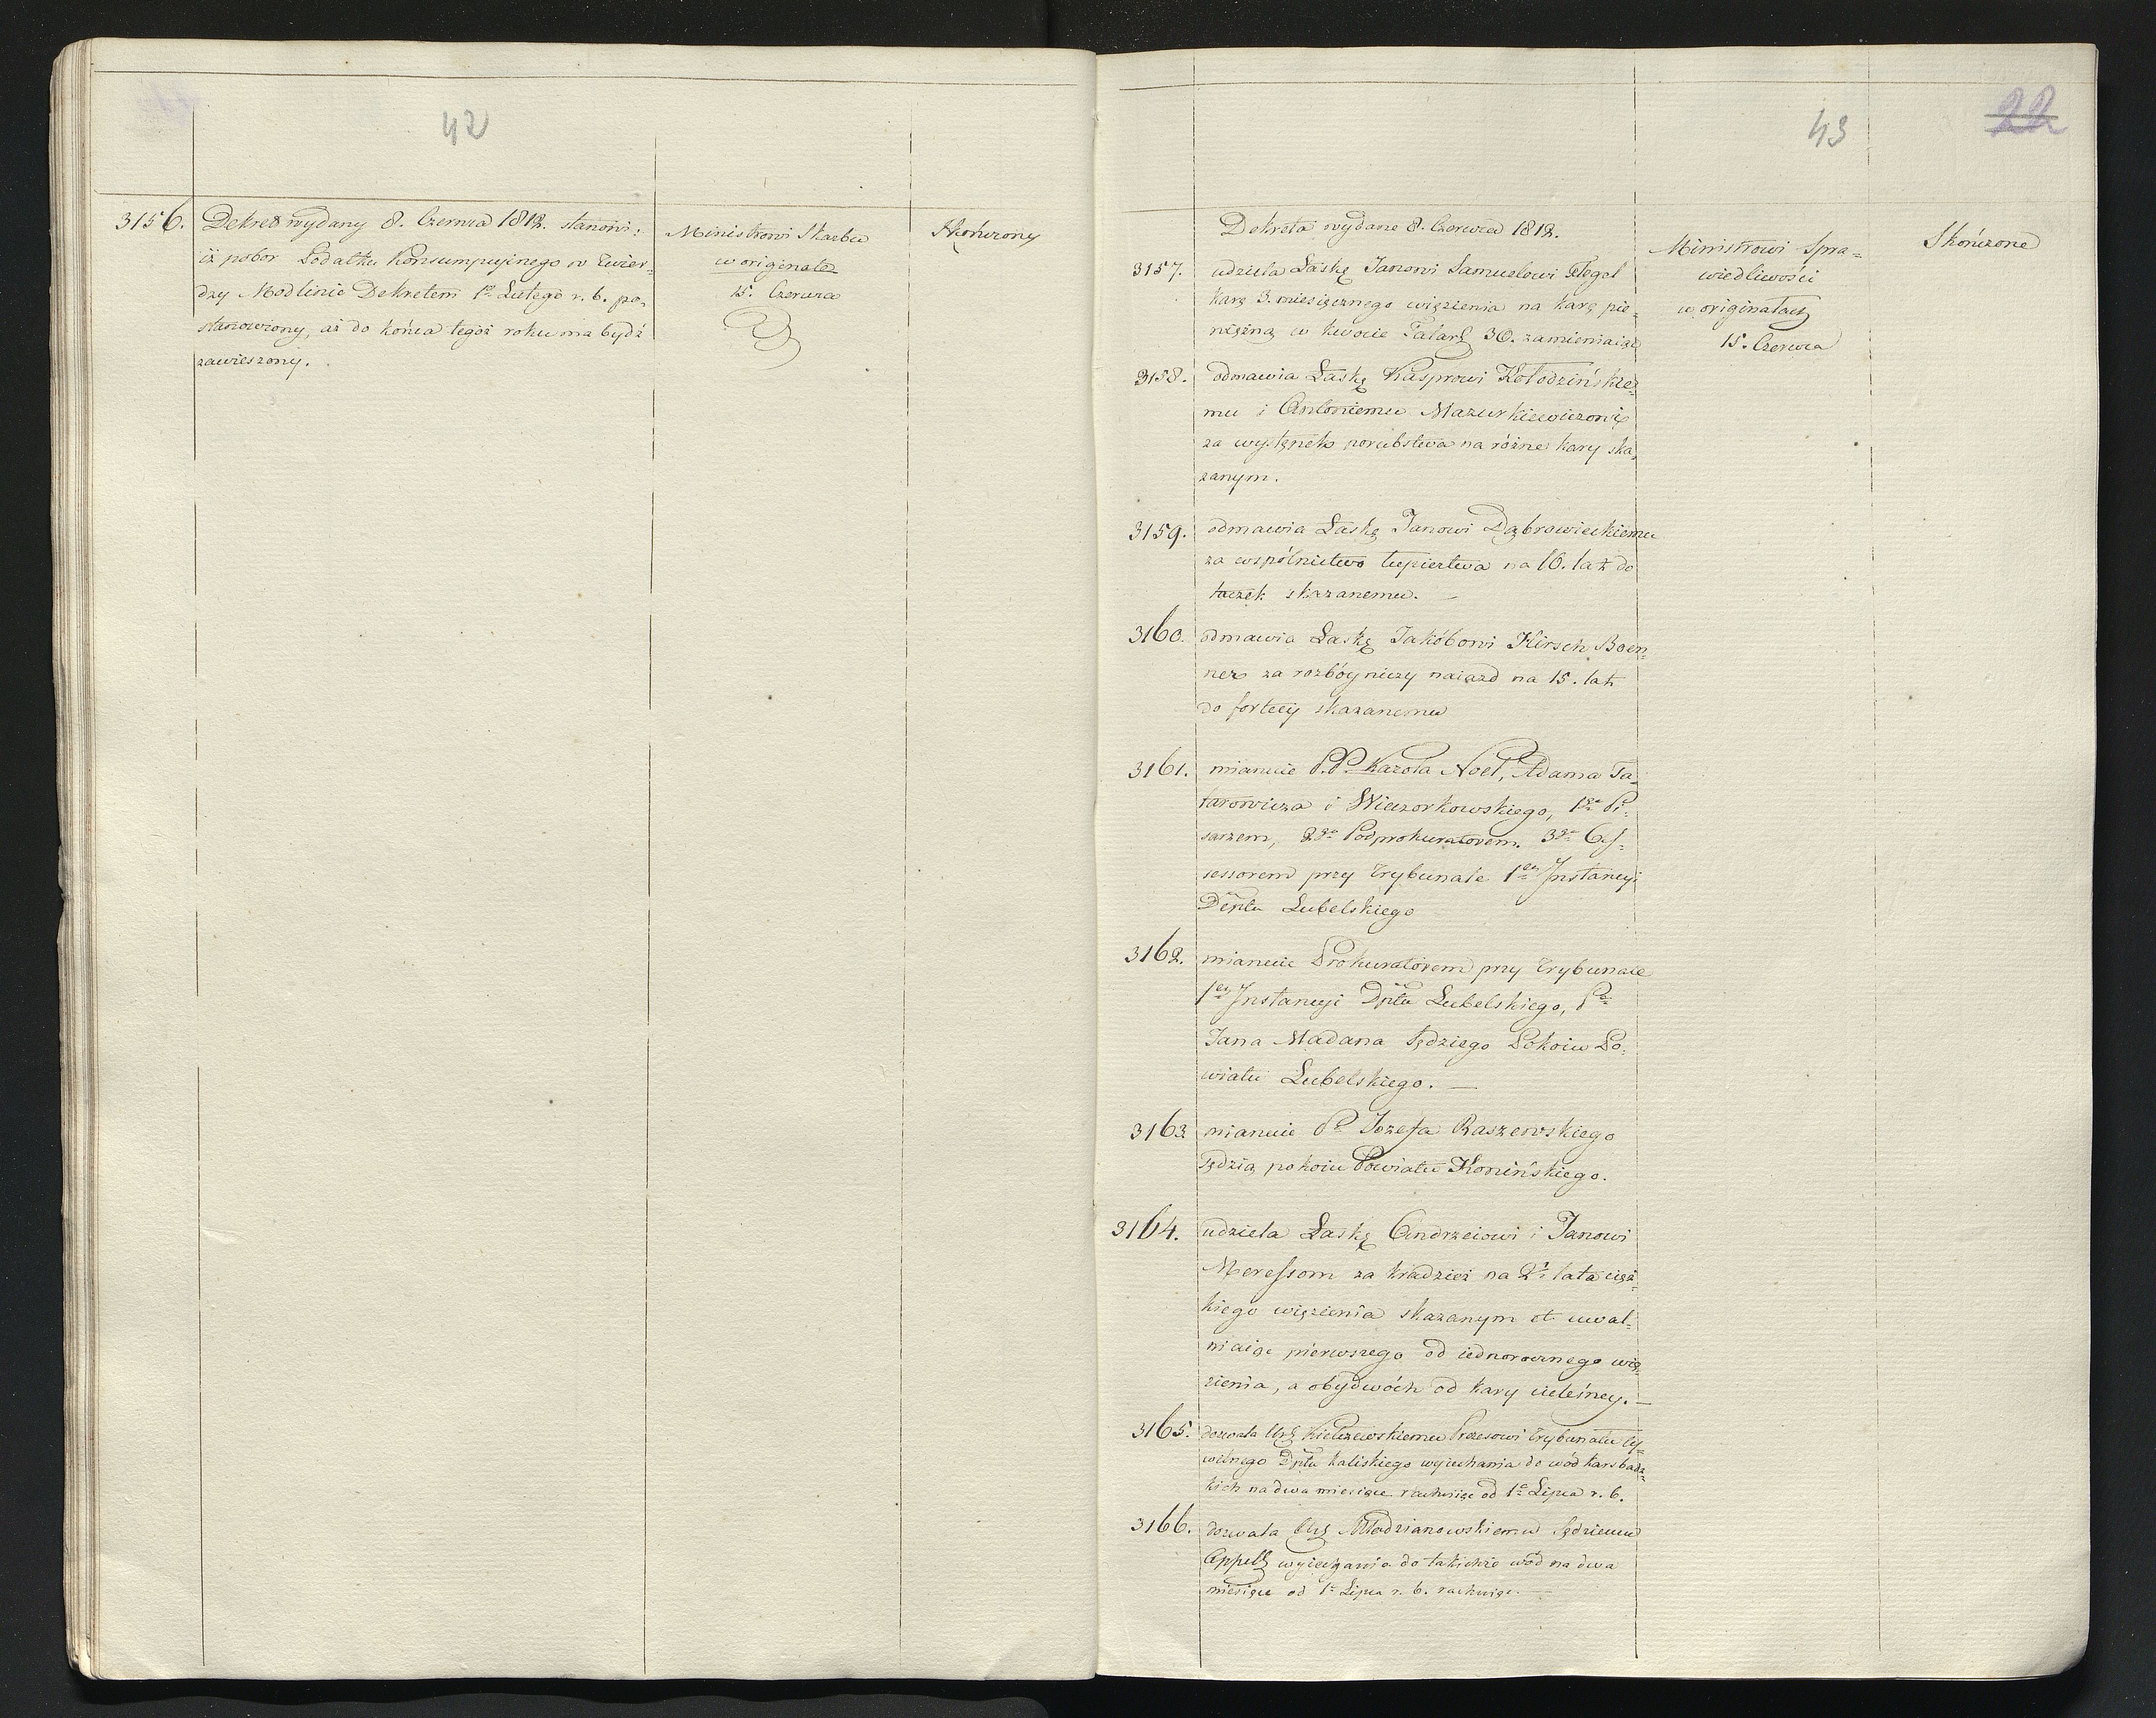 42
3156. Dekret wydany 8. Czerwca 1812. stanowi:
iż pobor Podatku Konsumpcyinego w Twier-
dzy Modlinie Dekretem 1go Lutego r. b. po-
stanowiony, aż do końca tegoż roku ma bydź
zawieszony.
Ministrowi Skarbu
w originale
15. Czerwca
Skończony
43
22
Dekreta wydane 8. Czerwca 1812.
3157. udziela Łaskę Janowi Samuelowi Flegel
karę 3. miesięcznego więzienia na karę pie-
niężną w kwocie Talar 30. zamieniaiąc
3158. odmawia Łaskę Kasprowi Kołodzińskie-
mu i Antoniemu Mazurkiewiczowi
za występek porubstwa na różne kary ska-
zanym.
3159. odmawia Łaskę Janowi Dąbrowieckiemu
za wspólnictwo łupieztwa na 16. lat do
taczek skazanemu. —
3160. odmawia Łaskę Jakóbowi Hirsch Boen-
ner za rozbóyniczy naiazd na 15. lat
do fortecy skazanemu
3161. mianuie P.P. Karola Noel, Adama Ta-
tarowicza i Wieczorkowskiego, 1go Pi-
sarzem, 2go Podprokuratorem. 3go As-
sessorem przy Trybunale 1ey Instancyi
Deptu Lubelskiego
3162. mianuie Prokuratorem przy Trybunale
1ey Instancyi Dptu Lubelskiego, Pa
Jana Madana Sędziego Pokoiu Po-
wiatu Lubelskiego. —
3163 mianuie Pa Jozefa Raszewskiego
Sędzią pokoiu Powiatu Konińskiego.
3164. udziela Łaskę Andrzeiowi i Janowi
Meressom za kradzież na 2 lata cięż-
kiego więzienia skazanym uwal-
niaiąc pierwszego od iednorocznego wię-
zienia, a obydwóch od kary cieleśney. —
3165. dozwala Ur Kiełczewskiemu Prezesowi Trybunału Cy-
wilnego Dptu Kaliskiego wyiechania do wód karsbadz-
kich na dwa miesiące rachuiąc od 1go Lipca r. b.
3166. dozwala Ur Młodzianowskiemu Sędziemu
Appell wyiechania do takichże wód na dwa
miesiące od 1 Lipca r. b. rachuiąc. —
Ministrowi Spra-
wiedliwości
w originałach
15. Czerwca
Skończone